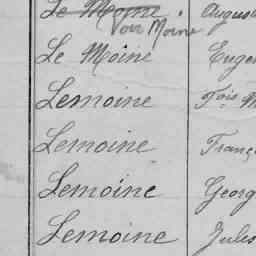 Le Moine Augus
Voir Moine
Le Moine Euge
Lemoine Fois M
Lemoine Franç
Lemoine Georg
Lemoine Jules